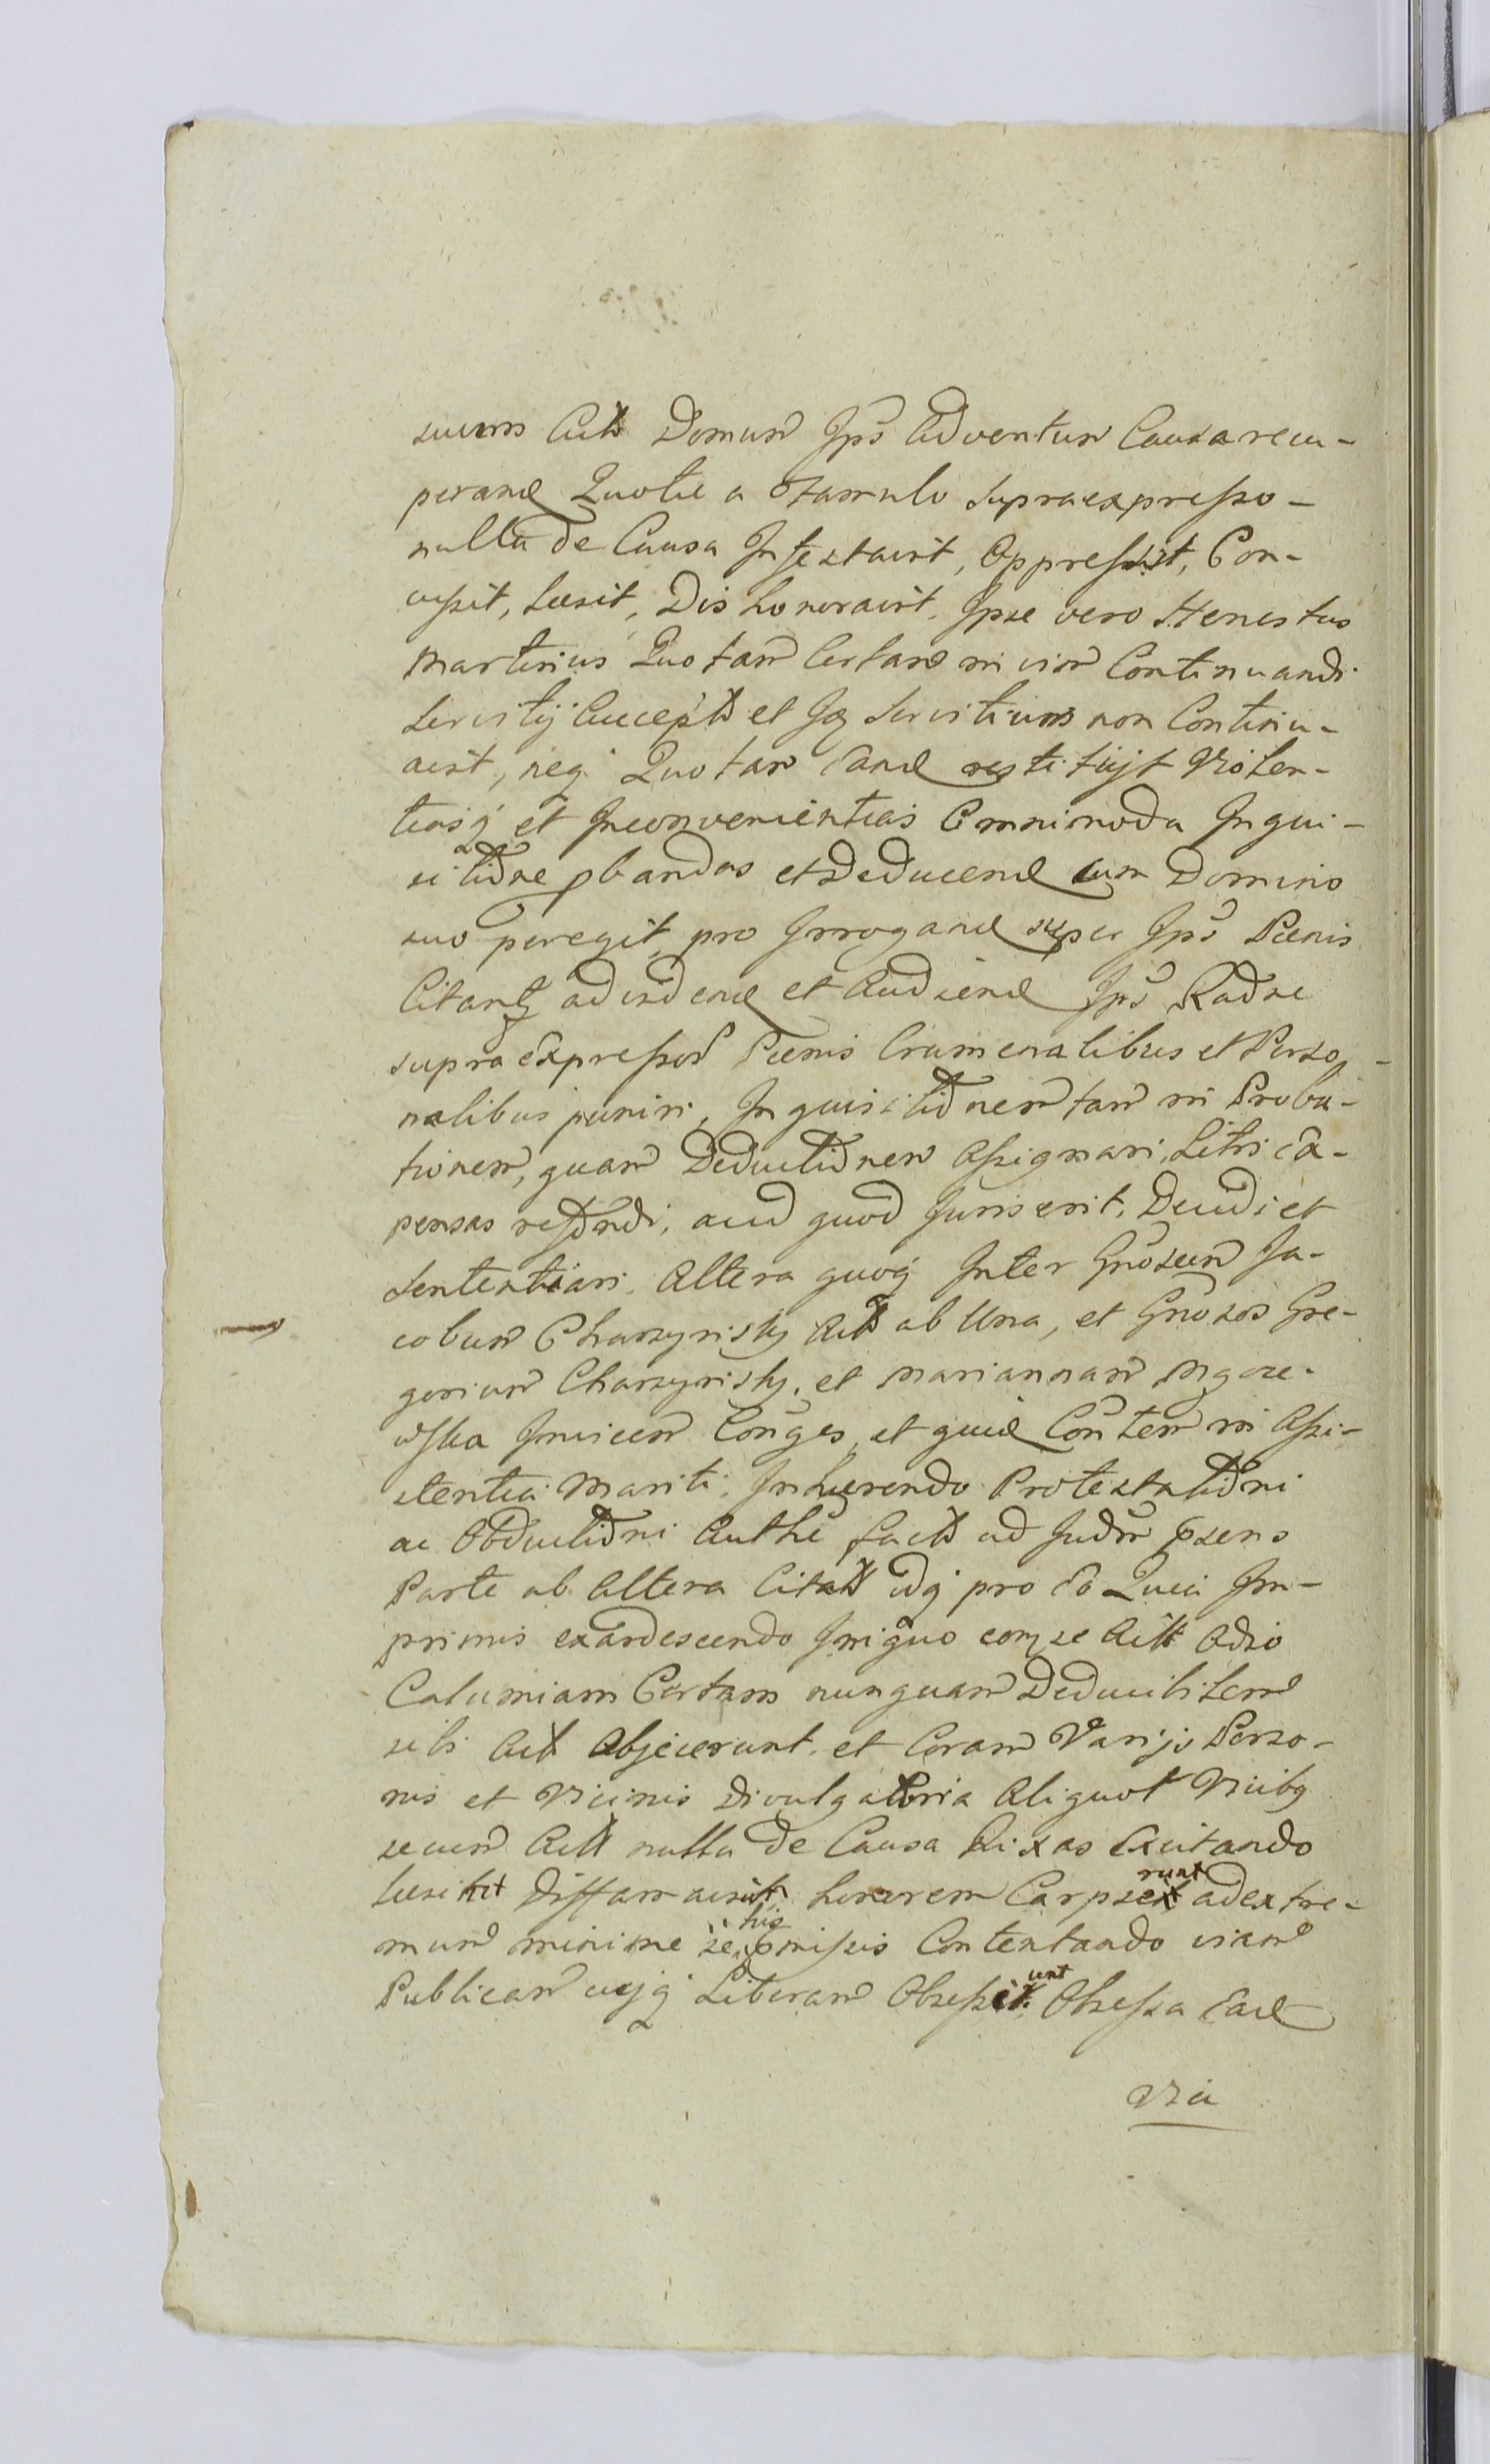 suum Actt Domum Ips Adventum Causa recu-
perand Quotae a Famulo supraexpresso-
nulla de Causa Infestavit, Oppressit, Con-
cussit, Laesit, Dishonoravit, Ipse vero Honestus
Martinus Quotam Certam in vim Continuandi
Servitij Accepit et Idq Servitium non Continu-
avit, neq Quotam Eand restituijt Violen-
tiasq et Inconvenientias Omnimoda Inqui-
sitione pbandas et Deducend cum Domino
suo peregit, pro Irrogand super Ips Poenis
Citant ad vidend et Audiend Ips Raone
supra expressor Poenis Criminalibus et Perso-
nalibus puniri, Inquisitionem tam in Proba-
tionem, quam Deductionem Assignari, Litis ex-
pensas refundi, aliud quod Juris erit, Decidi et
Sententiari. Altera quoq Inter Gnosum Ja-
cobum Charzynsky Actt ab Una, et Gnosos Gre-
gorium Charzynsky, et Mariannam Mgoze-
wska Invicem Conges, et quid Contem in Assi-
stentia Mariti, Inhaerendo Protestationi
ac Obductioni Authe factt ad Judm psens
Parte ab Altera Citatt idq pro Eo Quia Im-
primis exardescendo Iniquo contse Actt Odio
Calumniam Certam nunquam Deducibilem
sibi Actt Objecerunt, et Coram Varijs Perso-
nis et Vicinis Divulgatoria Aliquot Vicibq
secum Actt nulla de Causa Rixas Excitando
Laesit Diffamavit, honorem Carpserunt ad extre-
mum minime se pmissis Contentando viam
Publicam usq Liberam Obsessit.unt Obsessa Ead
Via